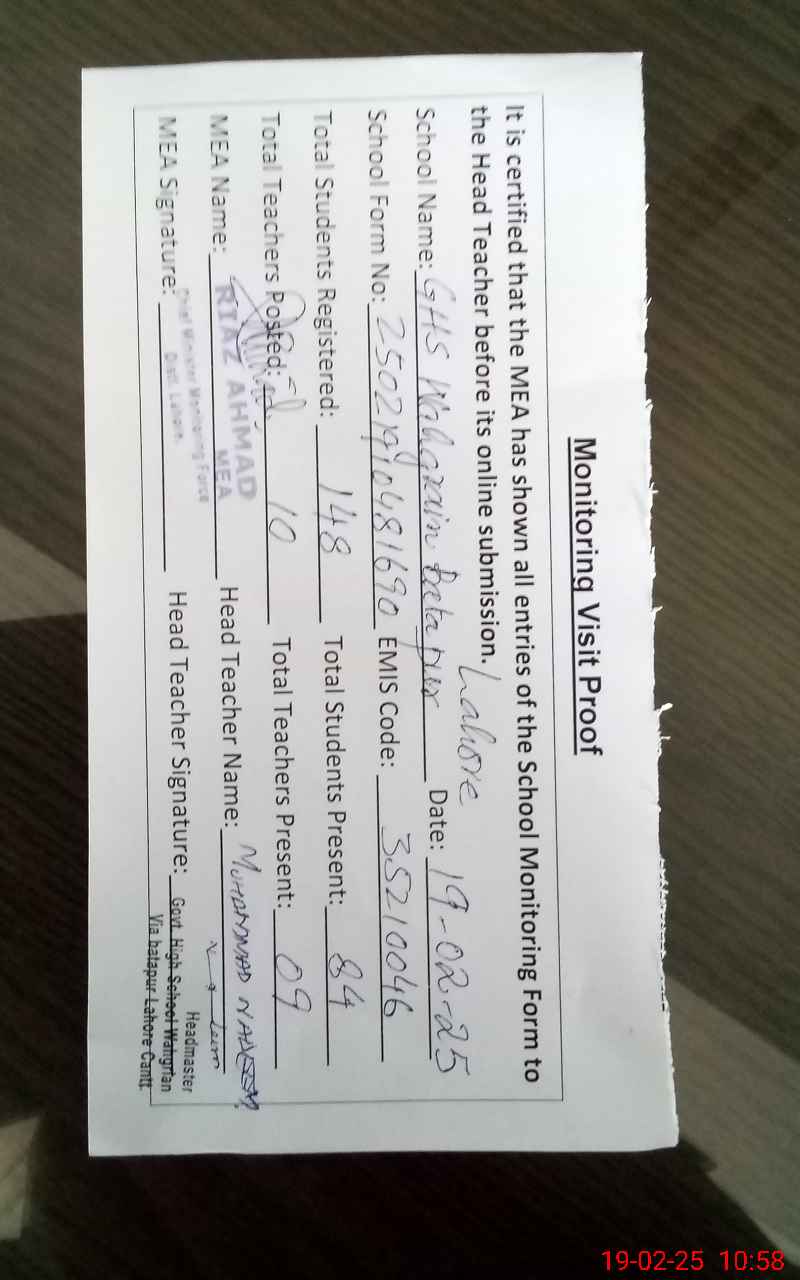 Monitoring Visit Proof
It is certified that the MEA has shown all entries of the School Monitoring Form to
the Head Teacher before its online submission.
Lahore
School Name: GHS Wahgrain Batapur Date: 19-02-25
School Form No: EMIS Code: 35210046
Total Students Registered: 148 Total Students Present: 84
Total Teachers Posted: 10 Total Teachers Present: 09
MEA Name: RIAZ AHMAD Head Teacher Name: MUHAMMAD NAEEM
MEA
Chief Minister Monitoring Force
Distt. Lahore.
MEA Signature: Head Teacher Signature:
Headmaster
Govt. High School Wahgrian
Via batapur Lahore Cantt.
19-02-25 10:58